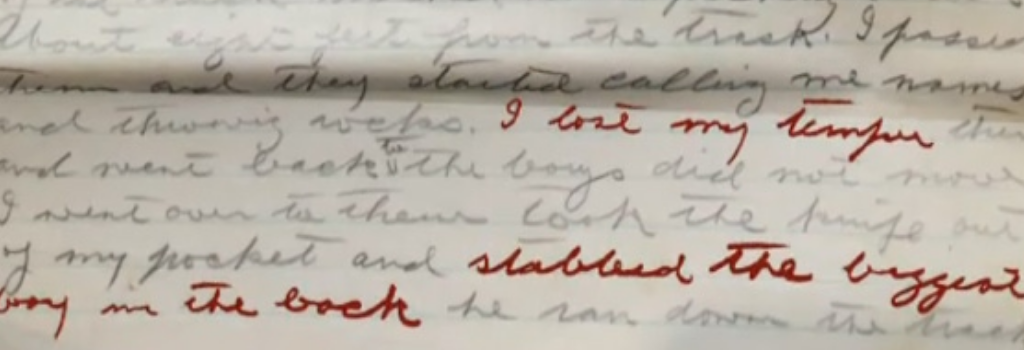 About eight feet from the track. I passed
them and they started calling me names
and throwing rocks. I lost my temper then
and went back to the boys did not move
I went over to them took the knife out
of my pocket and stabbed the biggest
boy in the back he ran down the track